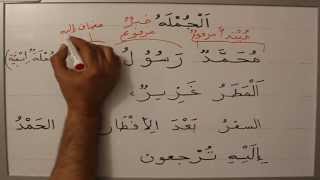 اَلْجُمْلَةُ
مُبْتَدَأٌ مرفوعٌ خَبَرٌ مرفوع مضاف إليه
مُحَمَّدٌ رَسُوْلُ
اَلْمَطَرُ غَزِيرٌ
السفرُ بَعْدَ الإِفْطَارِ الحَمْدُ
إِلَيْهِ تُرْجَعُون